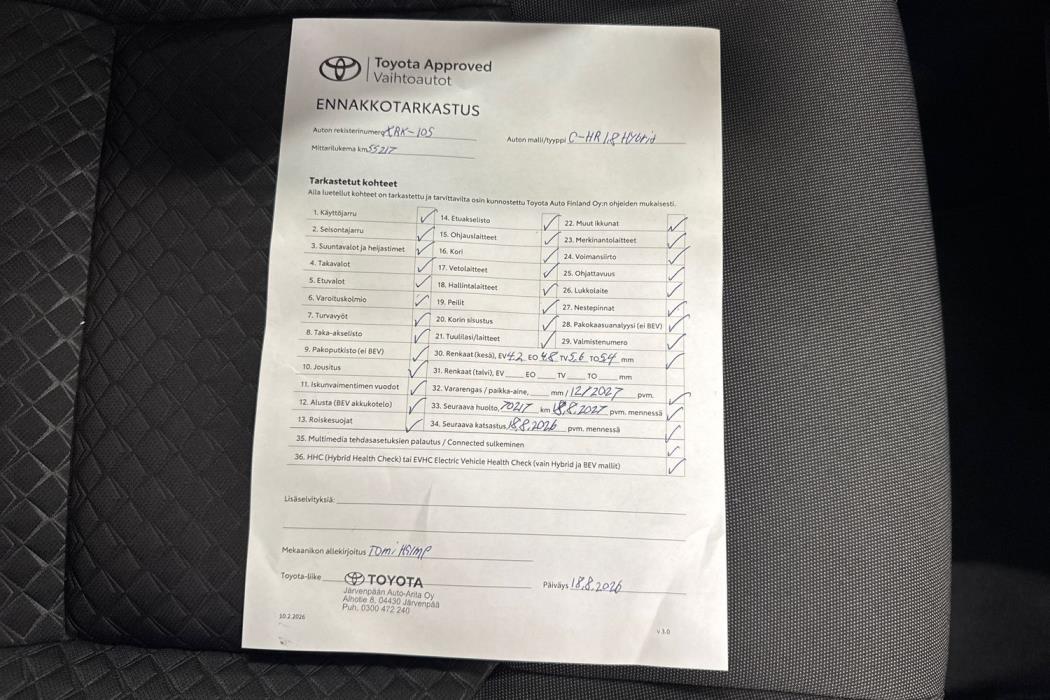 Toyota Approved
Vaihtoautot
ENNAKKOTARKASTUS
Auton rekisterinumero XRK-105
Auton malli/tyyppi C-HR 1.8 Hybrid
Mittarilukema km 55217
Tarkastetut kohteet
Alla luetellut kohteet on tarkastettu ja tarvittavilta osin kunnostettu Toyota Auto Finland Oy:n ohjeiden mukaisesti.
1. Käyttöjarru
2. Seisontajarru
3. Suuntavalot ja heijastimet
4. Takavalot
5. Etuvalot
6. Varoituskolmio
7. Turvavyöt
8. Taka-akselisto
9. Pakoputkisto (ei BEV)
10. Jousitus
11. Iskunvaimentimien vuodot
12. Alusta (BEV akkukotelo)
13. Roiskesuojat
14. Etuakselisto
15. Ohjauslaitteet
16. Kori
17. Vetolaitteet
18. Hallintalaitteet
19. Peilit
20. Korin sisustus
21. Tuulilasi/laitteet
22. Muut ikkunat
23. Merkinantolaitteet
24. Voimansiirto
25. Ohjattavuus
26. Lukkolaite
27. Nestepinnat
28. Pakokaasuanalyysi (ei BEV)
29. Valmistenumero
30. Renkaat (kesä), EV 4.2 EO 4.8 TV 5.6 TO 5.4 mm
31. Renkaat (talvi), EV EO TV TO mm
32. Vararengas / paikka-aine, mm / 12/2027 pvm.
33. Seuraava huolto, 70217 km 18.8.2027 pvm. mennessä
34. Seuraava katsastus 18.8.2026 pvm. mennessä
35. Multimedia tehdasasetuksien palautus / Connected sulkeminen
36. HHC (Hybrid Health Check) tai EVHC Electric Vehicle Health Check (vain Hybrid ja BEV mallit)
Lisäselvityksiä:
Mekaanikon allekirjoitus Tomi
Toyota-liike TOYOTA
Päiväys 18.8.2026
Järvenpään Auto-Arita Oy
Alhotie 8, 04430 Järvenpää
Puh. 0300 472 240
10.2.2026
V 3.0